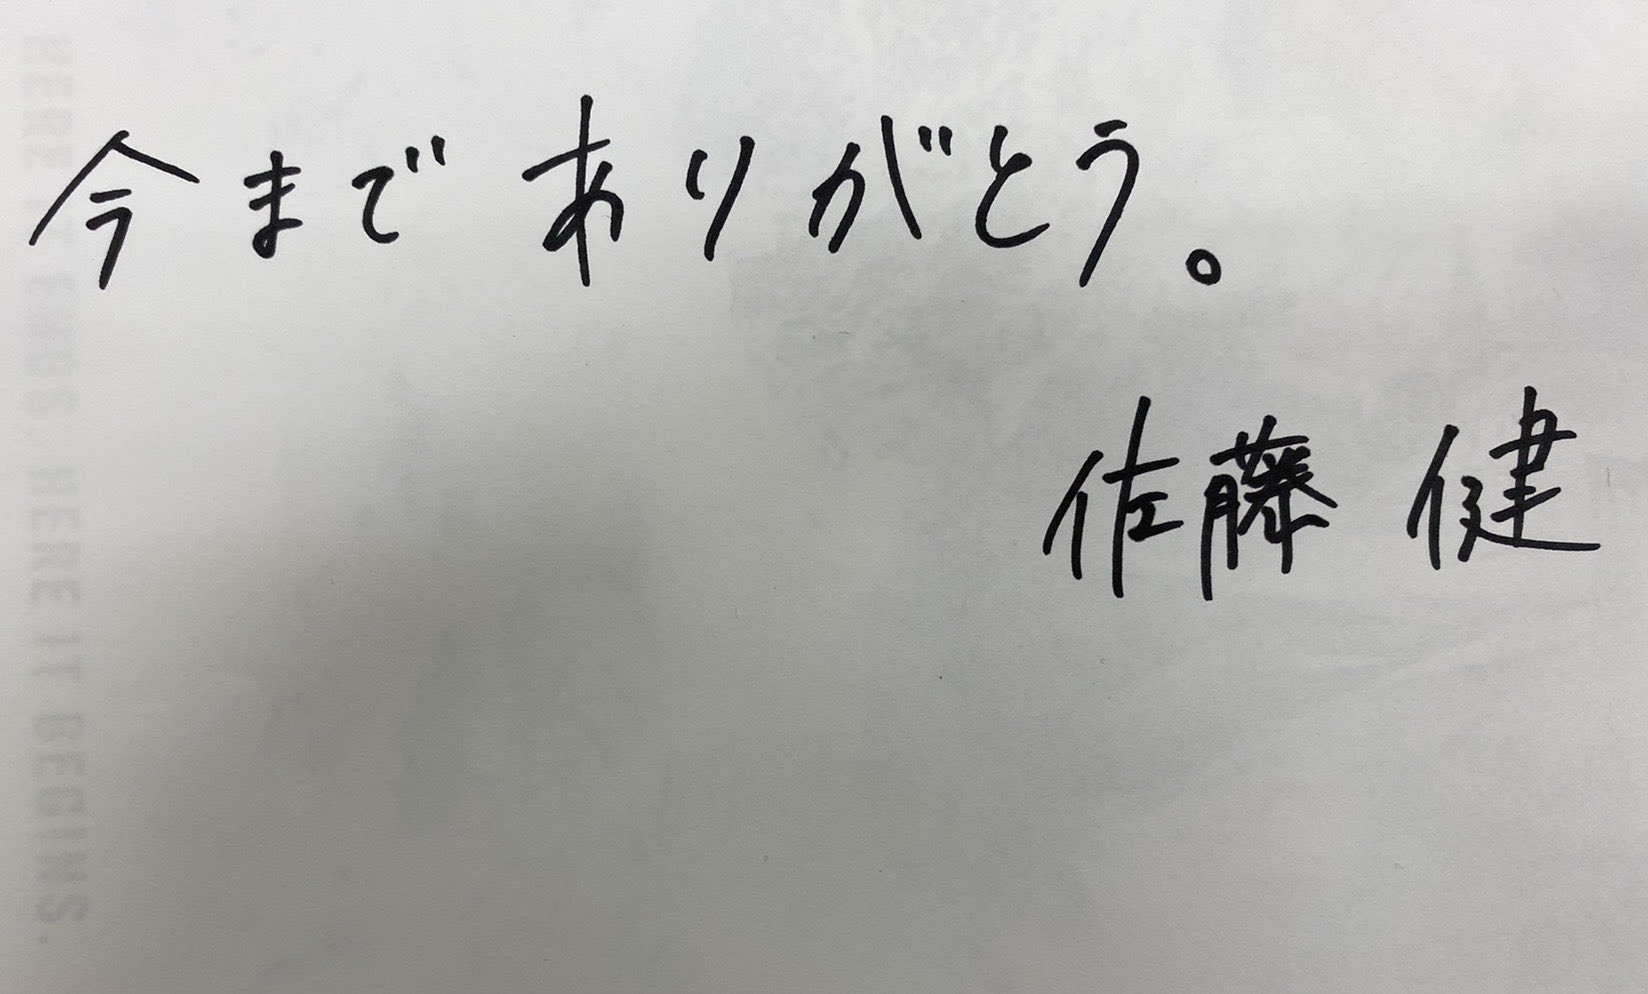 今までありがとう。
佐藤 健
HERE IT ENDS. HERE IT BEGINS.